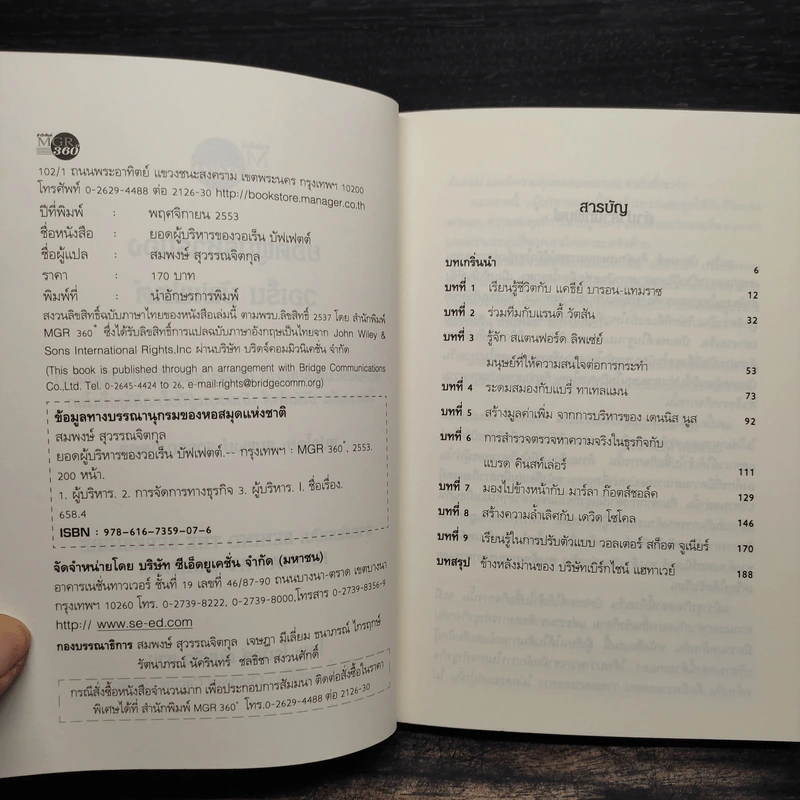 สำนักพิมพ์
MGR 360°
102/1 ถนนพระอาทิตย์ แขวงชนะสงคราม เขตพระนคร กรุงเทพฯ 10200
โทรศัพท์ 0-2629-4488 ต่อ 2126-30 http://bookstore.manager.co.th
ปีที่พิมพ์ : พฤศจิกายน 2553
ชื่อหนังสือ : ยอดผู้บริหารของวอเร็น บัฟเฟตต์
ชื่อผู้แปล : สมพงษ์ สุวรรณจิตกุล
ราคา : 170 บาท
พิมพ์ที่ : นำอักษรการพิมพ์
สงวนลิขสิทธิ์ฉบับภาษาไทยของหนังสือเล่มนี้ ตามพรบ.ลิขสิทธิ์ 2537 โดย สำนักพิมพ์
MGR 360° ซึ่งได้รับลิขสิทธิ์การแปลฉบับภาษาอังกฤษเป็นไทยจาก John Wiley &
Sons International Rights,Inc ผ่านบริษัท บริดจ์คอมมิวนิเคชั่น จำกัด
(This book is published through an arrangement with Bridge Communications
Co.,Ltd. Tel. 0-2645-4424 to 26, e-mail:rights@bridgecomm.org)
ข้อมูลทางบรรณานุกรมของหอสมุดแห่งชาติ
สมพงษ์ สุวรรณจิตกุล
ยอดผู้บริหารของวอเร็น บัฟเฟตต์.-- กรุงเทพฯ : MGR 360°, 2553.
200 หน้า.
1. ผู้บริหาร. 2. การจัดการทางธุรกิจ 3. ผู้บริหาร. I. ชื่อเรื่อง.
658.4
ISBN : 978-616-7359-07-6
จัดจำหน่ายโดย บริษัท ซีเอ็ดยูเคชั่น จำกัด (มหาชน)
อาคารเนชั่นทาวเวอร์ ชั้นที่ 19 เลขที่ 46/87-90 ถนนบางนา-ตราด เขตบางนา
กรุงเทพฯ 10260 โทร. 0-2739-8222, 0-2739-8000,โทรสาร 0-2739-8356-9
http:// www.se-ed.com
กองบรรณาธิการ สมพงษ์ สุวรรณจิตกุล เจษฎา มีเลี่ยม ธนาภรณ์ ไกรฤกษ์
รัตนาภรณ์ นัครินทร์ ชลธิชา สงวนศักดิ์
กรณีสั่งซื้อหนังสือจำนวนมาก เพื่อประกอบการสัมมนา ติดต่อสั่งซื้อในราคา
พิเศษได้ที่ สำนักพิมพ์ MGR 360° โทร.0-2629-4488 ต่อ 2126-30
สารบัญ
บทเกริ่นนำ 6
บทที่ 1 เรียนรู้ชีวิตกับ แคธีย์ บารอน-แทมราซ 12
บทที่ 2 ร่วมทีมกับแรนดี้ วัตสัน 32
บทที่ 3 รู้จัก สแตนฟอร์ด ลิพเซย์
มนุษย์ที่ให้ความสนใจต่อการกระทำ 53
บทที่ 4 ระดมสมองกับแบรี่ ทาเทลแมน 73
บทที่ 5 สร้างมูลค่าเพิ่ม จากการบริหารของ เดนนิส นูส 92
บทที่ 6 การสำรวจตรวจหาความจริงในธุรกิจกับ
แบรด คินสท์เล่อร์ 111
บทที่ 7 มองไปข้างหน้ากับ มาร์ลา ก๊อตส์ชอล์ค 129
บทที่ 8 สร้างความล้ำเลิศกับ เดวิด โซโคล 146
บทที่ 9 เรียนรู้ในการปรับตัวแบบ วอลเตอร์ สก๊อต จูเนียร์ 170
บทสรุป ข้างหลังม่านของ บริษัทเบิร์กไชน์ แฮทาเวย์ 188